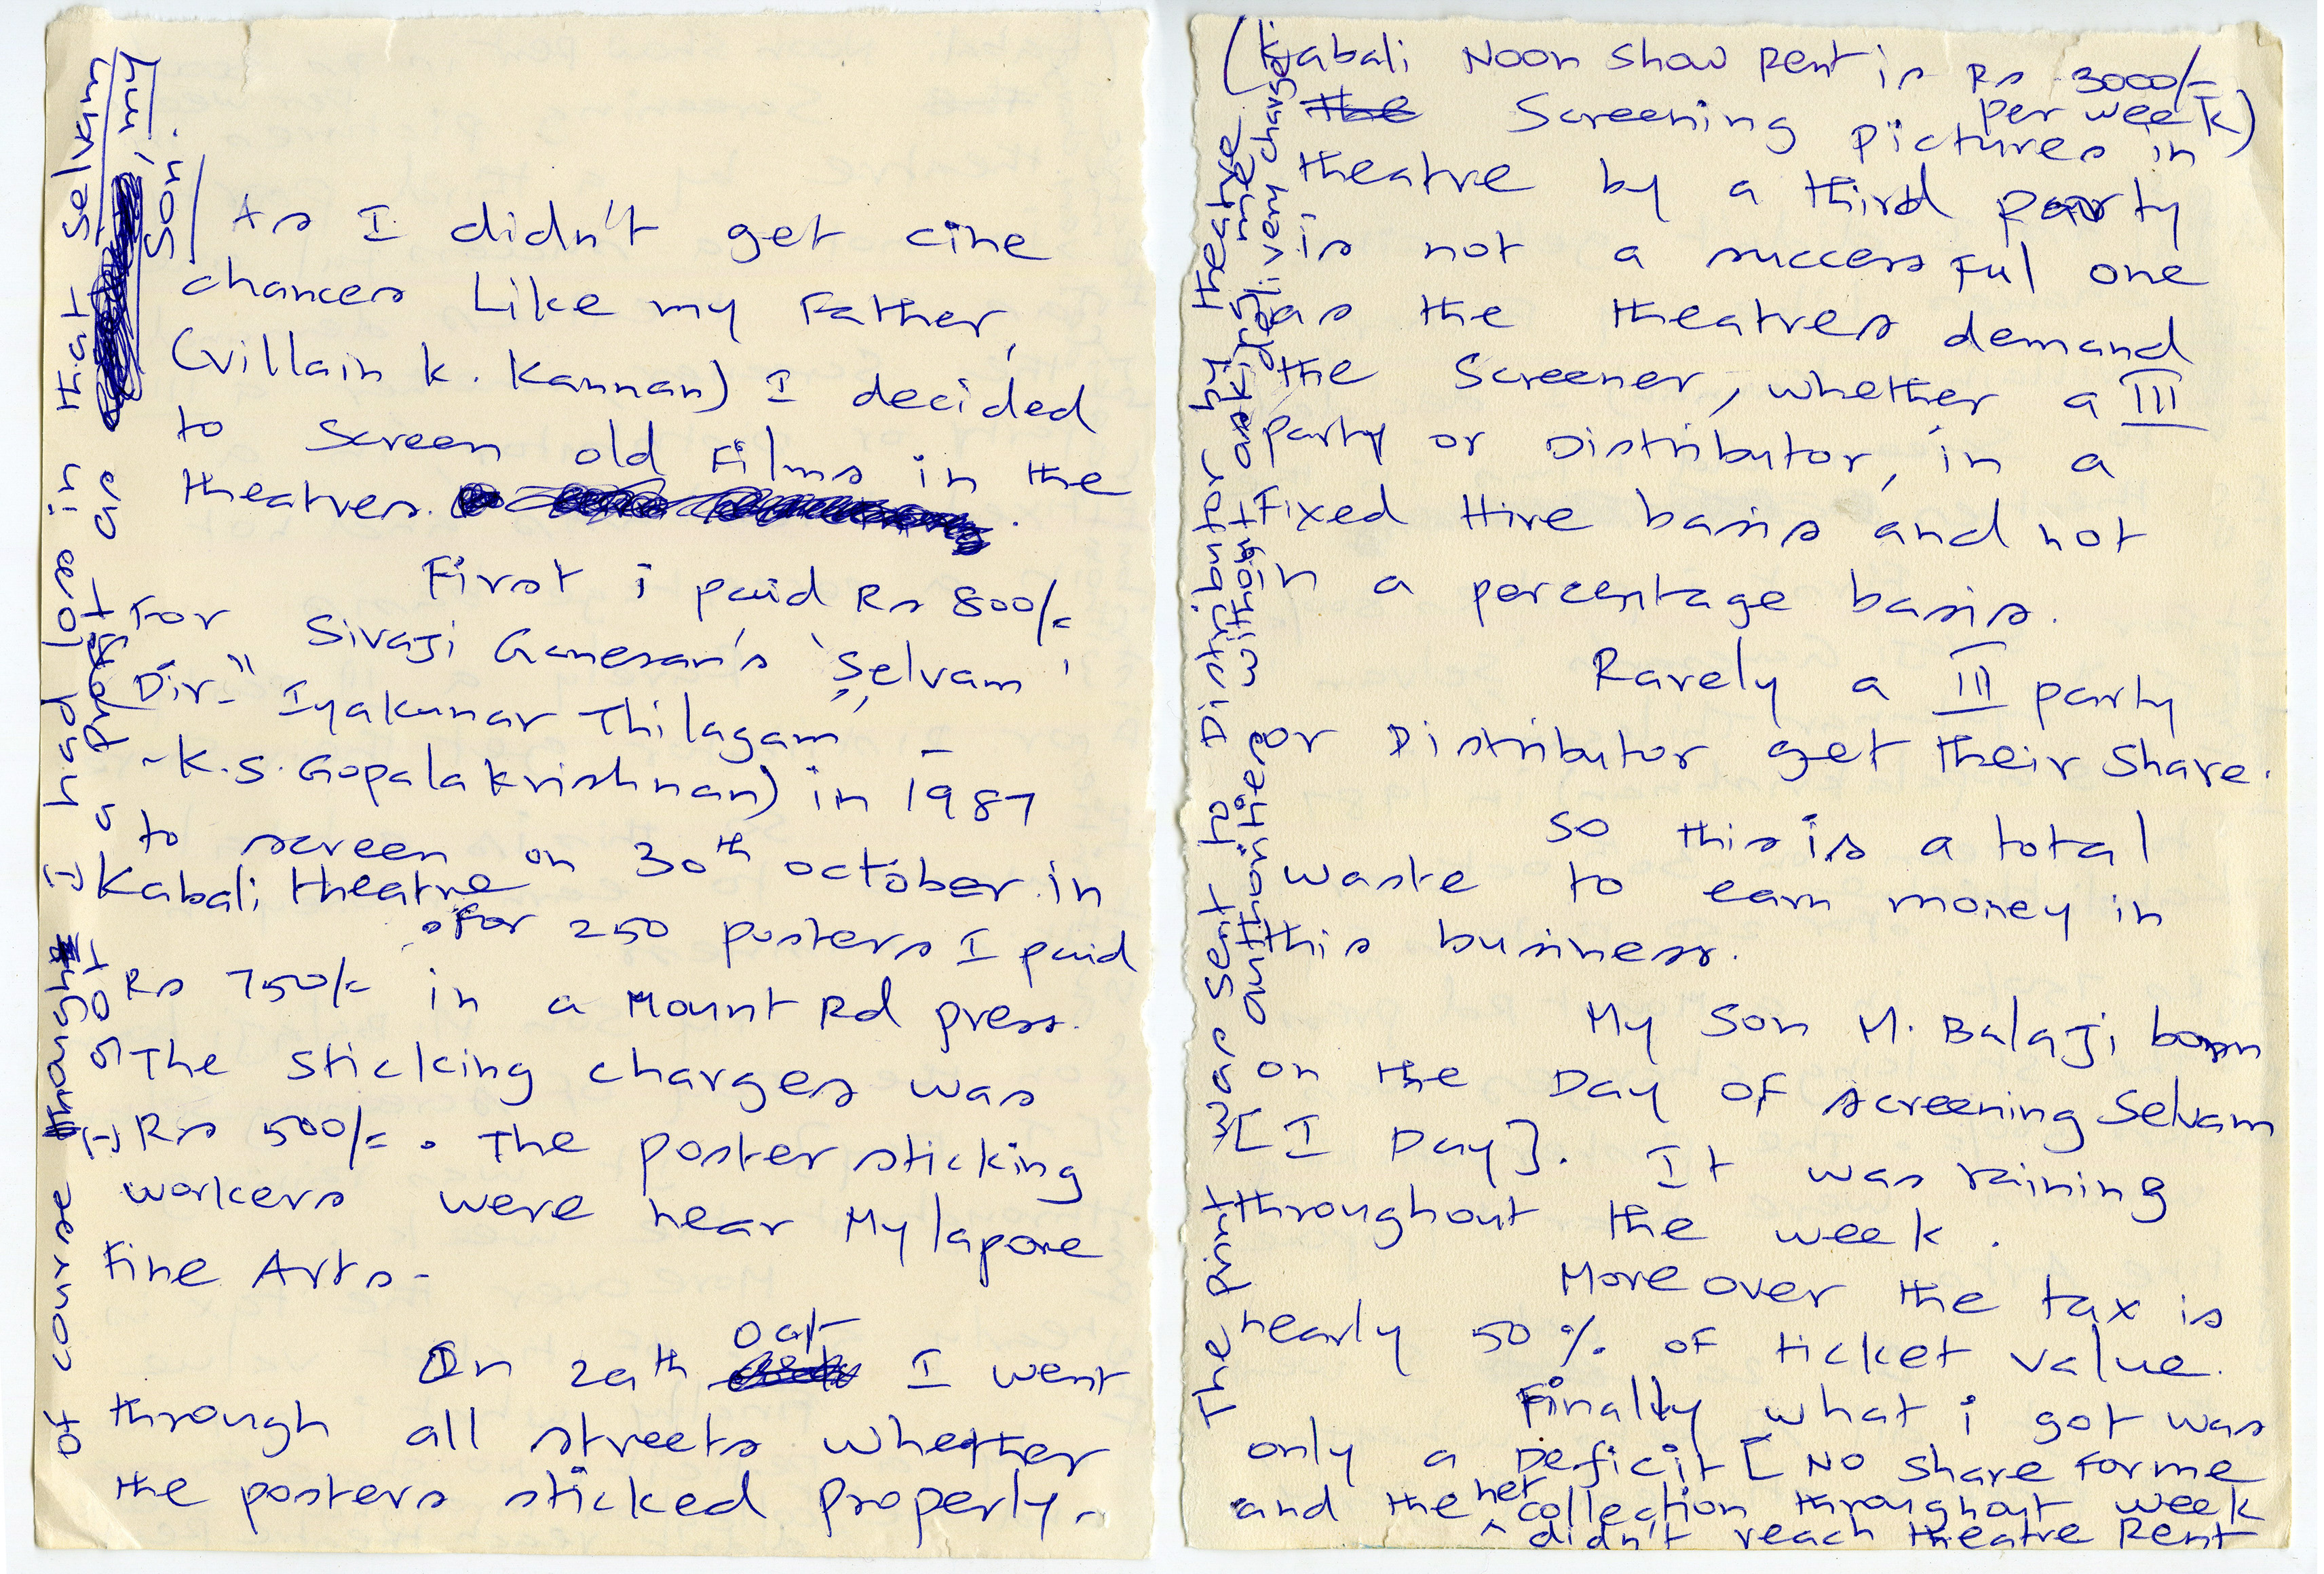 As I didn't get cine
chances Like my Father,
(villain K. Kannan) I decided
to screen old Films in the
theatres.
First i paid Rs 800/-
For Sivaji Ganesan's 'Selvam'
Dir- "Iyakunar Thilagam" -
-K.S. Gopalakrishnan) in 1987
to screen on 30th october in
Kabali theatre
For 250 posters I paid
Rs 750/- in a Mount Rd press.
The sticking charges was
Rs 500/-. The poster sticking
workers were near Mylapore
Fine Arts-
On 29th Oct I went
through all streets whether
the posters sticked properly.
of course though I had loss in that selvam
I got a profit as , my
son.
(Kabali Noon Show Rent is Rs 3000/-
per week)
the Screening pictures in
theatre by a third party
is not a successful one
as the theatres demand
the Screener, whether a III
party or Distributor, in a
Fixed Hire basis and not
in a percentage basis.
Rarely a III party
or Distributor get their share.
So this is a total
waste to earn money in
this business.
My Son M. Balaji born
on the Day of screening Selvam
[I Day]. It was raining
throughout the week.
Moreover the tax is
nearly 50% of ticket value.
Finally what i got was
only a Deficit [No share for me
and the net collection throughout week
didn't reach theatre Rent
The print was sent to Distributor by theatre
authorities without asking me
delivery charges.